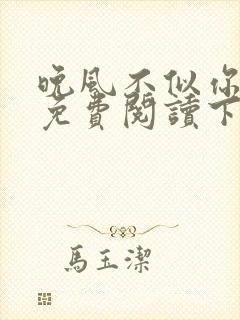 晚風不似你
免費閱讀下
馬玉潔